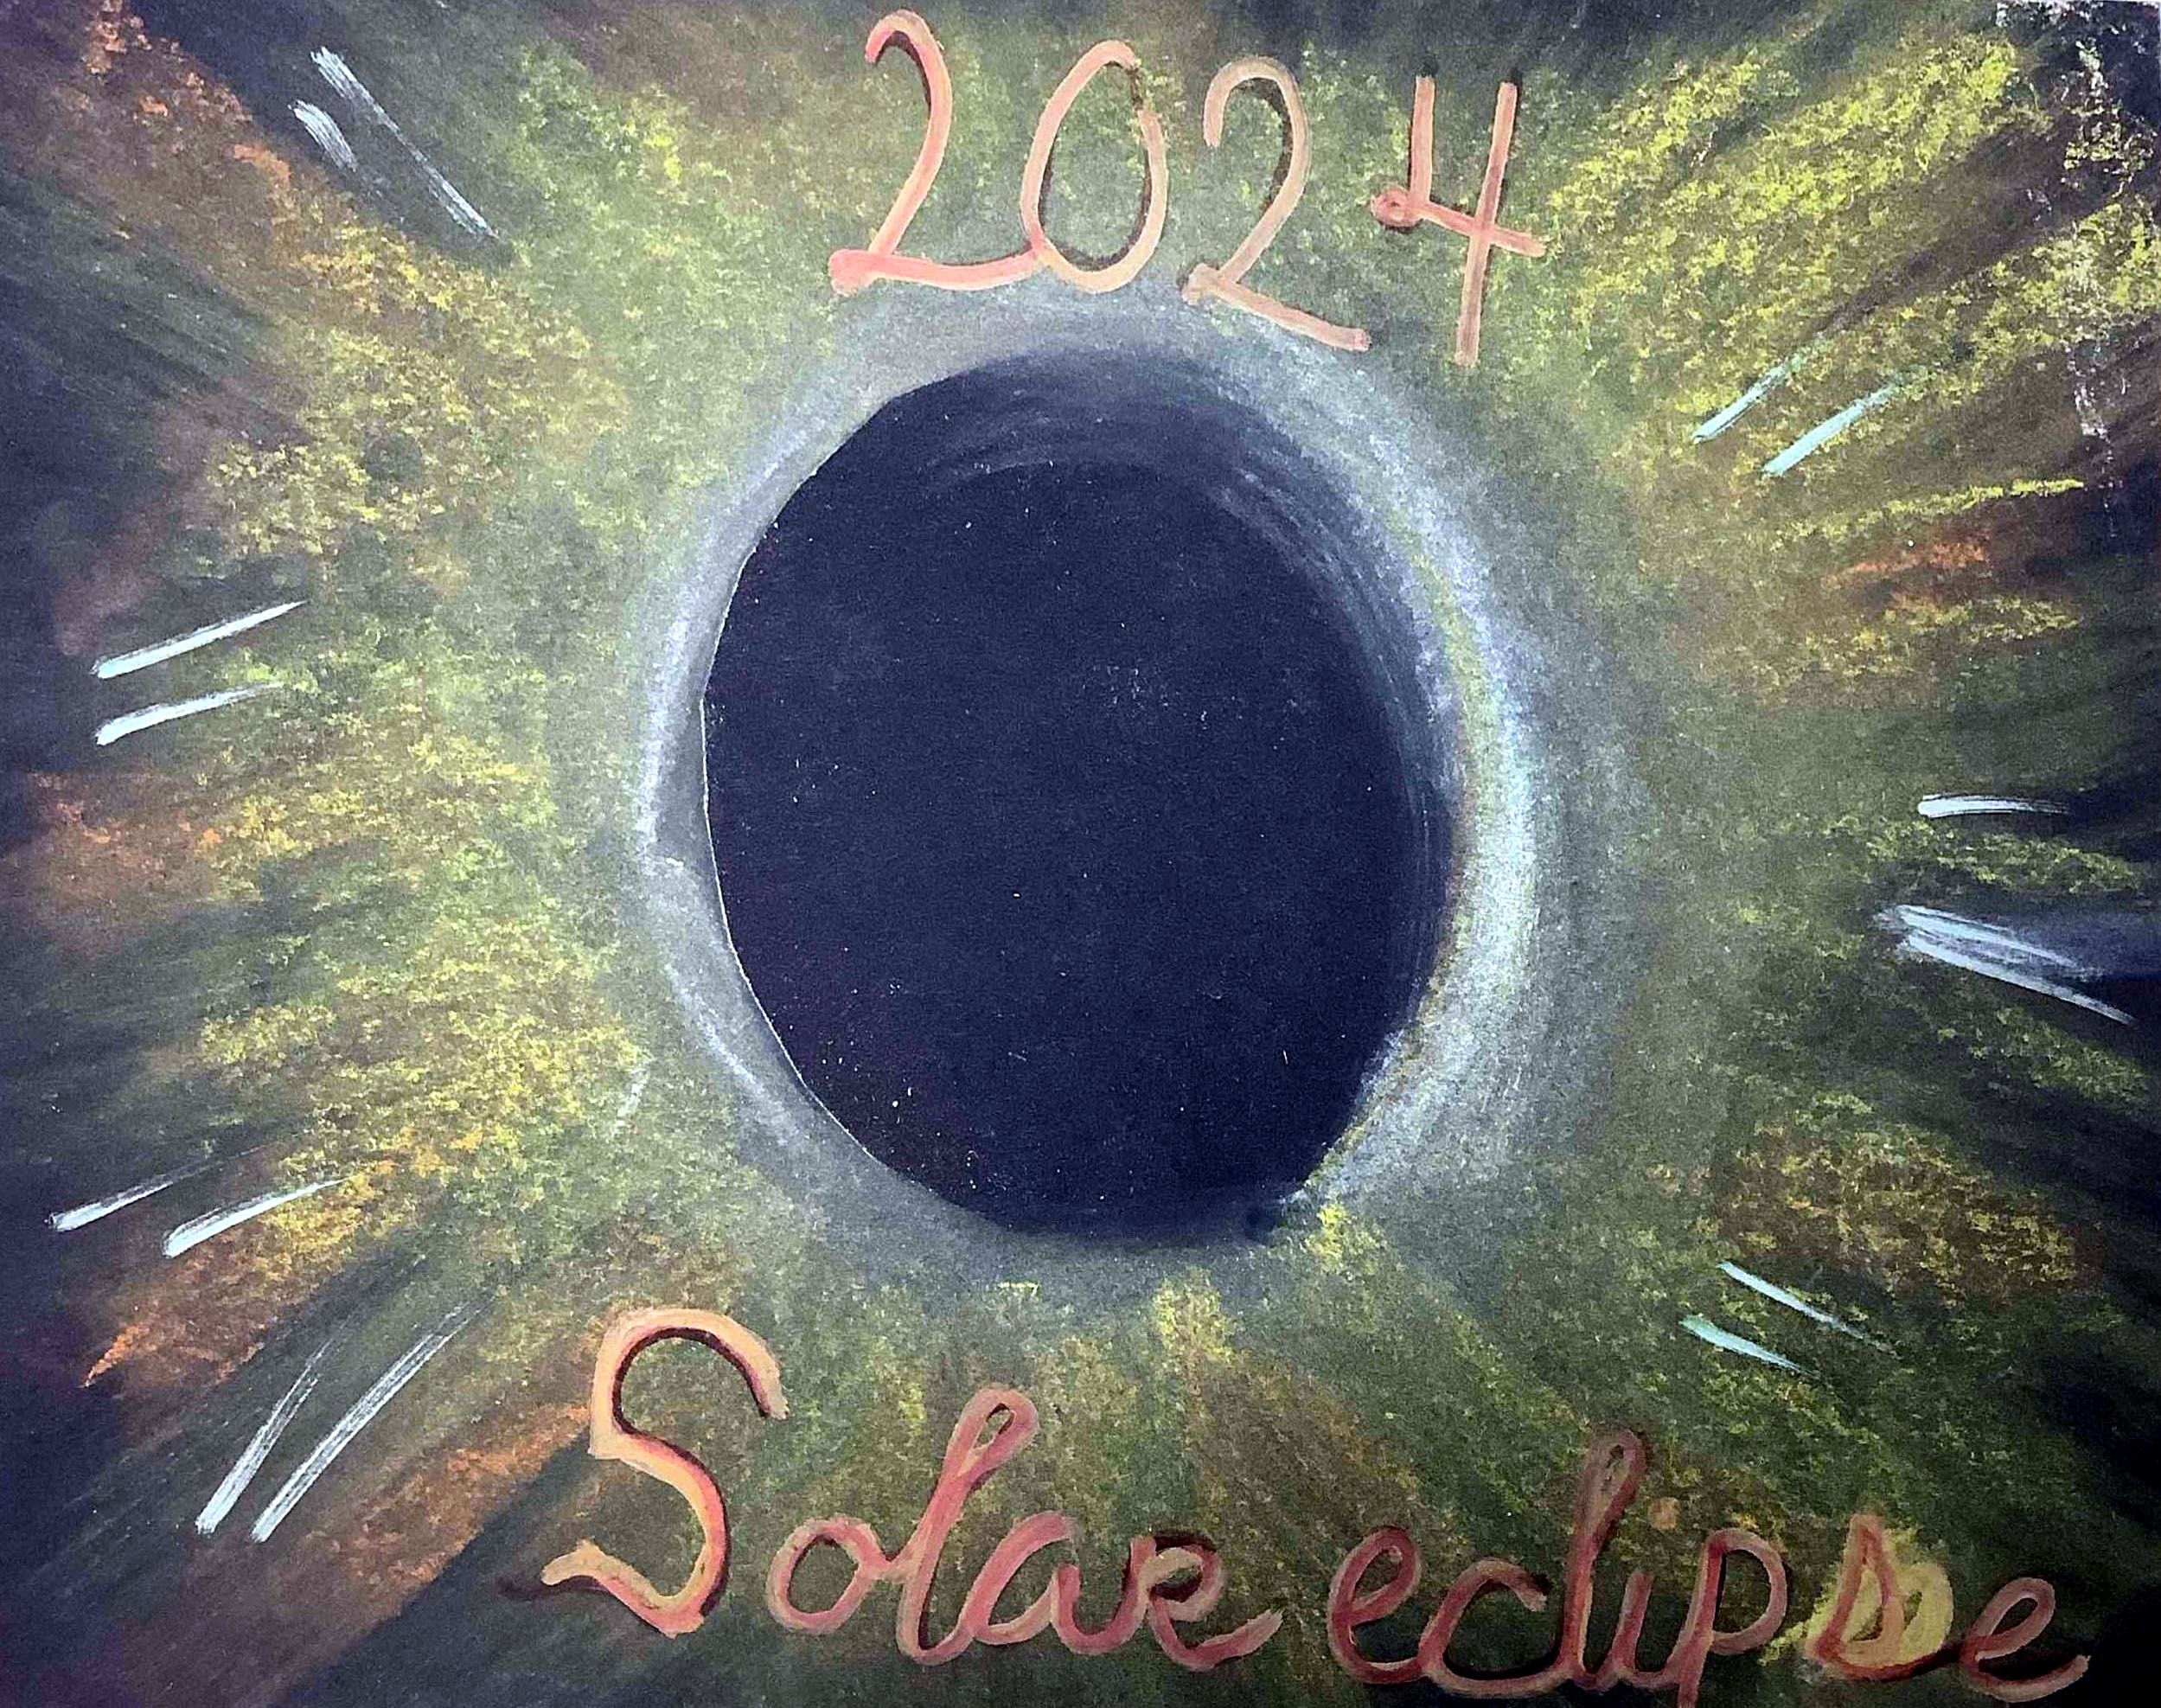 2024
Solar eclipse